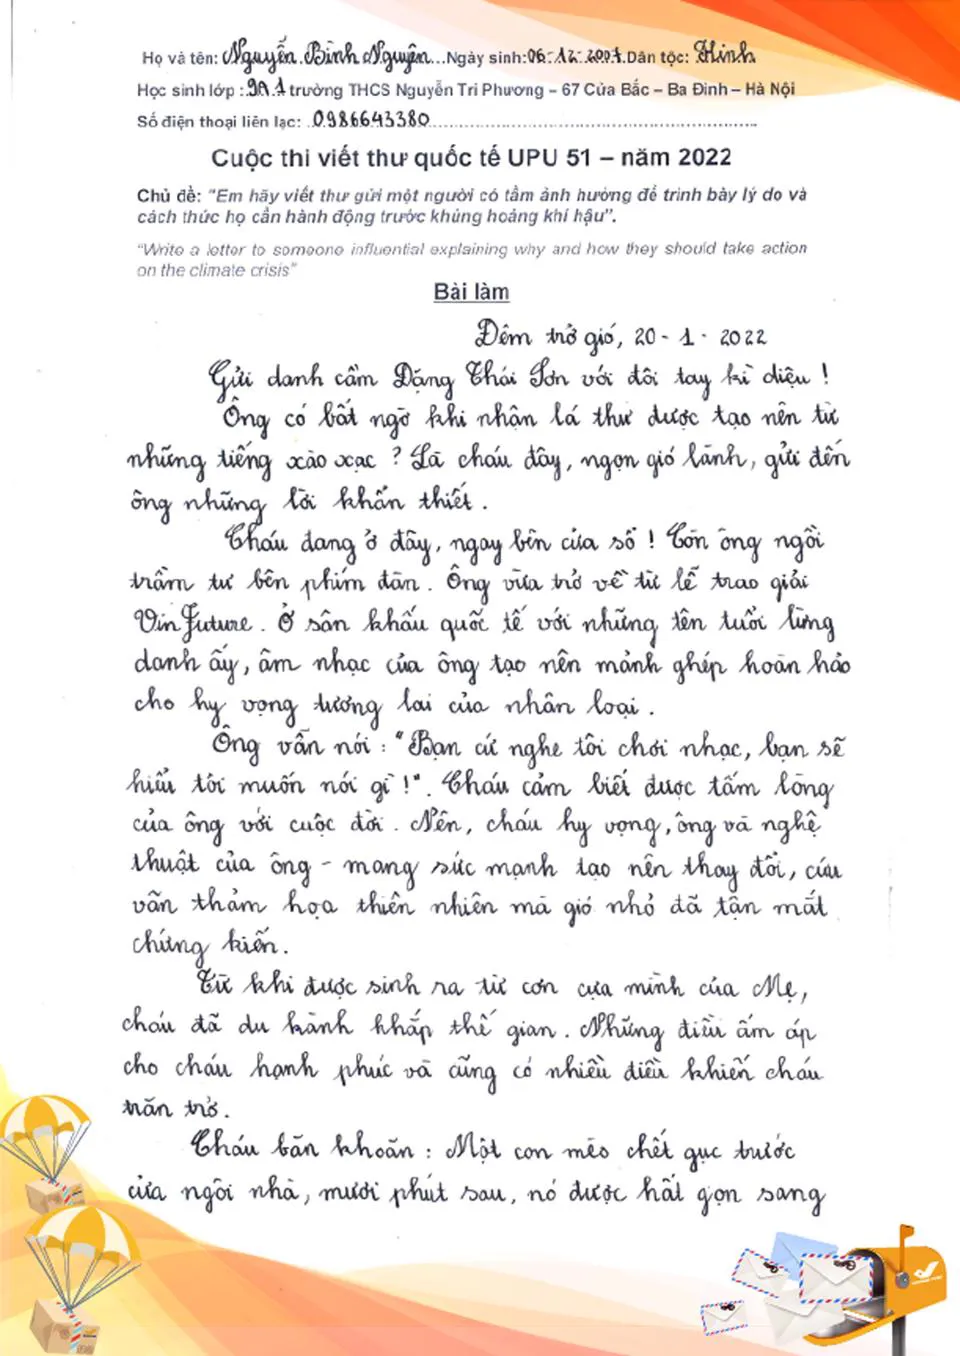 Họ và tên: Nguyễn Bình Nguyên...Ngày sinh: 06-12-2007. Dân tộc: Kinh
Học sinh lớp : 9A1 trường THCS Nguyễn Tri Phương – 67 Cửa Bắc – Ba Đình – Hà Nội
Số điện thoại liên lạc: 0986643380
Cuộc thi viết thư quốc tế UPU 51 – năm 2022
Chủ đề: "Em hãy viết thư gửi một người có tầm ảnh hưởng để trình bày lý do và
cách thức họ cần hành động trước khủng hoảng khí hậu".
"Write a letter to someone influential explaining why and how they should take action
on the climate crisis"
Bài làm
Đêm trở gió, 20 - 1 - 2022
Gửi danh cầm Đặng Thái Sơn với đôi tay kì diệu !
Ông có bất ngờ khi nhận lá thư được tạo nên từ
những tiếng xào xạc ? Là cháu đây, ngọn gió lành, gửi đến
ông những lời khẩn thiết.
Cháu đang ở đây, ngay bên cửa sổ ! Còn ông ngồi
trầm tư bên phím đàn. Ông vừa trở về từ lễ trao giải
VinFuture. Ở sân khấu quốc tế với những tên tuổi lừng
danh ấy, âm nhạc của ông tạo nên mảnh ghép hoàn hảo
cho hy vọng tương lai của nhân loại.
Ông vẫn nói : "Bạn cứ nghe tôi chơi nhạc, bạn sẽ
hiểu tôi muốn nói gì !". Cháu cảm biết được tấm lòng
của ông với cuộc đời. Nên, cháu hy vọng, ông và nghệ
thuật của ông - mang sức mạnh tạo nên thay đổi, cứu
vãn thảm họa thiên nhiên mà gió nhỏ đã tận mắt
chứng kiến.
Từ khi được sinh ra từ cơn cựa mình của Mẹ,
cháu đã du hành khắp thế gian. Những điều ấm áp
cho cháu hạnh phúc và cũng có nhiều điều khiến cháu
trăn trở.
Cháu băn khoăn : Một con mèo chết gục trước
cửa ngôi nhà, mười phút sau, nó được hất gọn sang